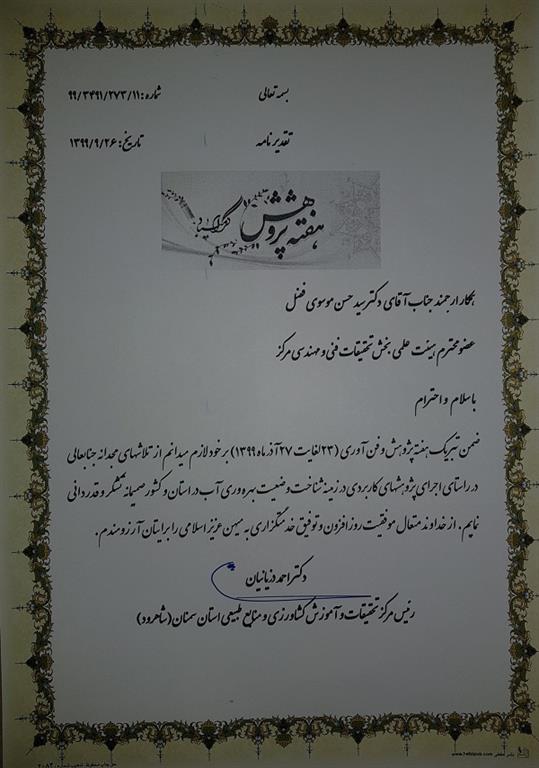 بسمه تعالی
شماره: ۹۹/۳۴۹۱/۲۷۳/۱۱
تقدیر نامه
تاریخ: ۱۳۹۹/۹/۲۶
هفته پژوهش
گرامیباد
همکار ارجمند جناب آقای دکتر سید حسن موسوی فضل
عضو محترم هیئت علمی بخش تحقیقات فنی و مهندسی مرکز
با سلام و احترام
ضمن تبریک هفته پژوهش و فن آوری (۲۳ لغایت ۲۷ آذر ماه ۱۳۹۹) بر خود لازم میدانم از تلاشهای مجدانه جنابعالی
در راستای اجرای پژوهشهای کاربردی در زمینه شناخت وضعیت بهره وری آب در استان و کشور صمیمانه تشکر و قدردانی
نمایم. از خداوند متعال موفقیت روز افزون و توفیق خدمتگزاری به میهن عزیز اسلامی را برایتان آرزومندم.
دکتر احمد دزیانیان
رئیس مرکز تحقیقات و آموزش کشاورزی و منابع طبیعی استان سمنان (شاهرود)